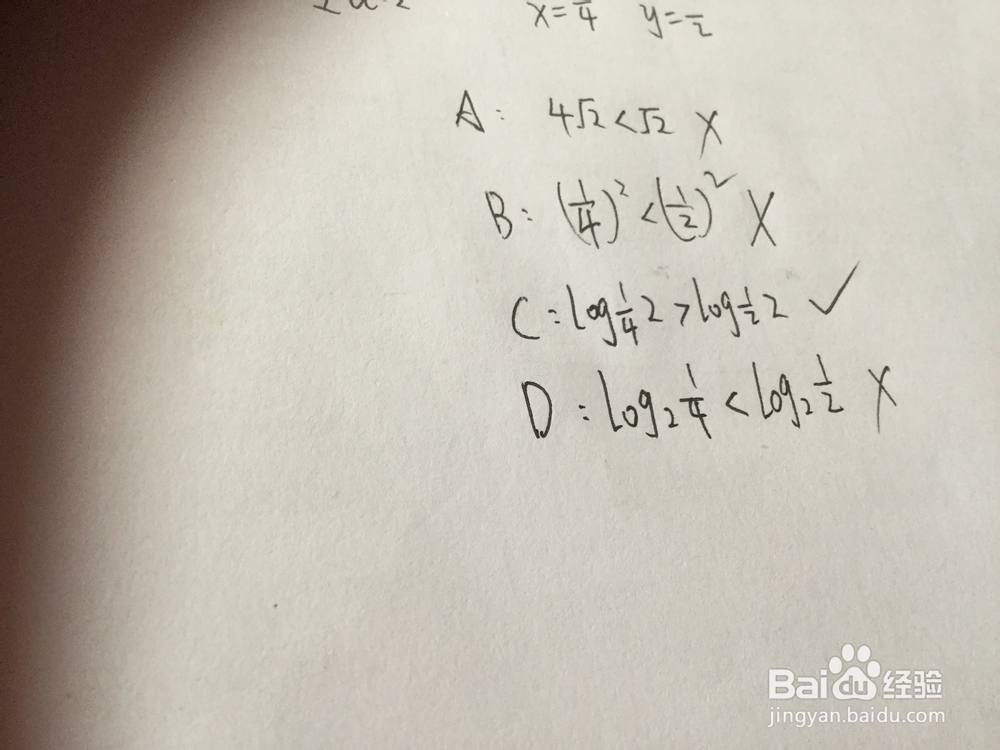 x=1/4 y=1/2
A: 4√2<√2 X
B: (1/4)²<(1/2)² X
C: log1/4 2>log1/2 2 ✓
D: log₂1/4<log₂1/2 X
Bai du 经验
jingyan.baidu.com